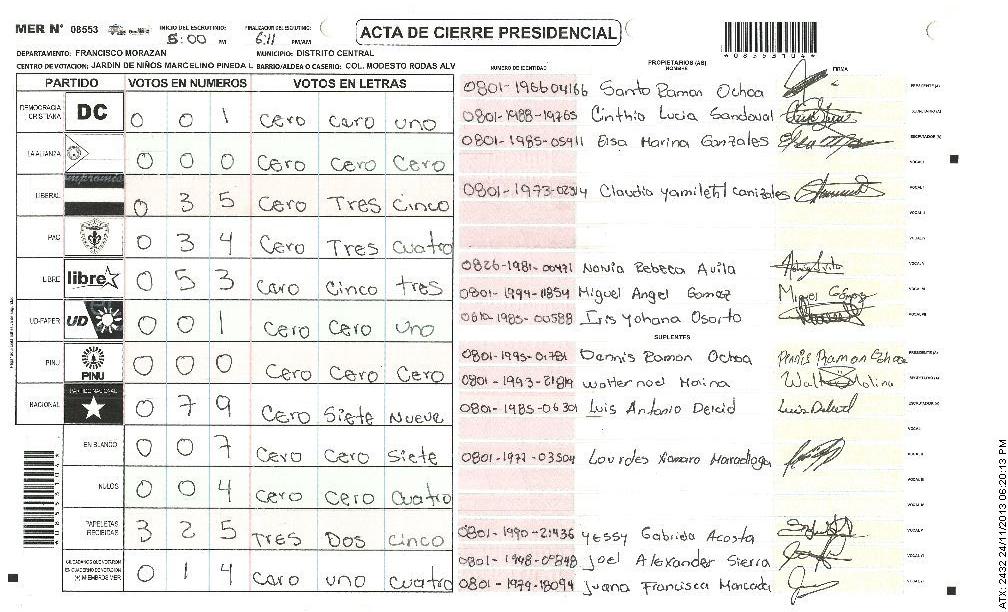 MER N° 08553
INICIO DEL ESCRUTINIO: 5:00 PM
FINALIZACION DEL ESCRUTINIO: 6:11 PM/AM
ACTA DE CIERRE PRESIDENCIAL
*08553104*
DEPARTAMENTO: FRANCISCO MORAZAN MUNICIPIO: DISTRITO CENTRAL
CENTRO DE VOTACION: JARDIN DE NIÑOS MARCELINO PINEDA L BARRIO/ALDEA O CASERIO: COL. MODESTO RODAS ALV
PARTIDO VOTOS EN NUMEROS VOTOS EN LETRAS
DEMOCRACIA CRISTIANA DC 0 0 1 Cero cero uno
LA ALIANZA 0 0 0 Cero Cero Cero
LIBERAL 0 3 5 Cero Tres Cinco
PAC 0 3 4 Cero Tres cuatro
LIBRE libre 0 5 3 Cero Cinco tres
UD-FAPER UD 0 0 1 Cero Cero uno
PINU PINU 0 0 0 Cero Cero Cero
NACIONAL PARTIDO NACIONAL 0 7 9 Cero Siete Nueve
EN BLANCO 0 0 7 Cero Cero Siete
NULOS 0 0 4 Cero Cero Cuatro
PAPELETAS RECIBIDAS 3 2 5 Tres Dos cinco
CIUDADANOS QUE VOTARON EN CUADERNO DE VOTACION (+) MIEMBROS MER 0 1 4 Cero uno cuatro
NUMERO DE IDENTIDAD PROPIETARIOS (AS) NOMBRE FIRMA
0801-196604166 Santo Ramon Ochoa PRESIDENTE (A)
0801-1988-19765 Cinthio Lucia Sandoval SECRETARIO (A)
0801-1985-05911 Elsa Marina Gonzales ESCRUTADOR (A)
VOCAL I
0801-1973-02314 Claudio yamileth canizales
0826-1981-00471 Novia Rebeca Avila
0801-1994-11854 Miguel Angel Gomez Miguel Gómez
0610-1985-00588 Iris yohana Osorto
SUPLENTES
0801-1995-01781 Dennis Ramon Ochoa Dennis Ramon Ochoa PRESIDENTE (A)
0801-1993-21819 Walter noel Molina Walter Molina SECRETARIO (A)
0801-1985-06301 Luis Antonio Dercid ESCRUTADOR (A)
0801-1977-03504 Lourdes Xomara Maradiaga
0801-1990-21436 yessy Gabrida Acosta
0801-1948-05848 Joel Alexander Sierra
0801-1979-18094 Juana Francisca Moncada
ATX-2432 24/11/2013 06:20:13 PM